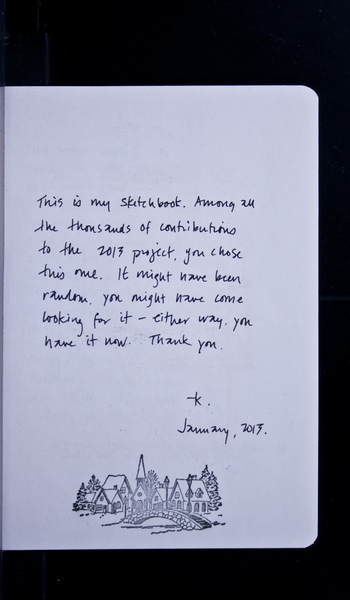 This is my sketchbook. Among all
the thousands of contributions
to the 2013 project, you chose
this one. It might have been
random, you might have come
looking for it – either way, you
have it now. Thank you.
-k.
January, 2013.